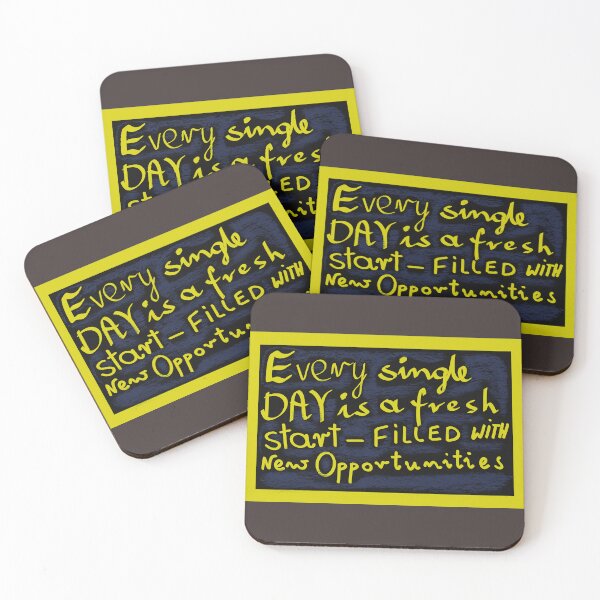 Every single
DAY is a
Every single
DAY is a fresh
start – FiLLED WITH
New Opportunities
Every single
DAY is a fresh
start – FiLLED WITH
New
Every single
DAY is a fresh
start – FiLLED WITH
New Opportunities